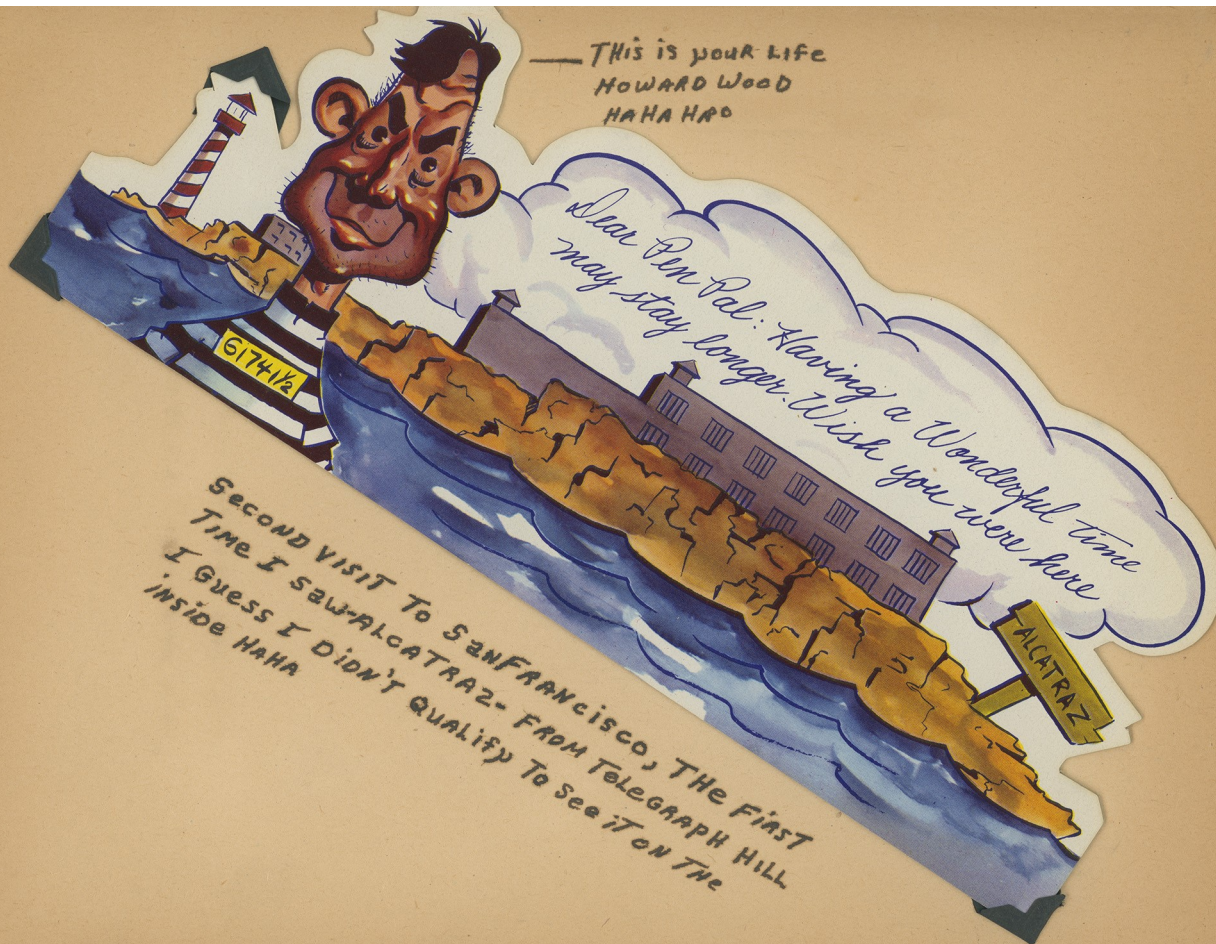 THIS IS YOUR LIFE
HOWARD WOOD
HAHA HAO
Dear Pen Pal: Having a Wonderful time
may stay longer. Wish you were here
61741½
ALCATRAZ
SECOND VISIT TO SANFRANCISCO, THE FIRST
TIME I SAW-ALCATRAZ- FROM TELEGRAPH HILL
I GUESS I DIDN'T QUALIFY TO SEE IT ON THE
INSIDE HAHA